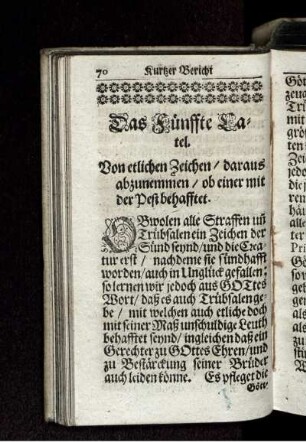 70 Kurtzer Bericht
Das Fünffte Ca-
tel.
Von etlichen Zeichen / daraus
abzunemmen / ob einer mit
der Pest behafftet.
OBwolen alle Straffen uñ
Trübsalen ein Zeichen der
Sünd seynd / und die Crea-
tur erst / nachdeme sie sündhafft
worden / auch in Unglück gefallen:
so lernen wir jedoch aus GOttes
Wort / daß es auch Trübsalen ge-
be / mit welchen auch etliche doch
mit seiner Maß unschuldige Leuth
behafftet seynd / ingleichen daß ein
Gerechter zu GOttes Ehren / und
zu Bestärckung seiner Brüder
auch leiden könne. Es pfleget die
Gött-